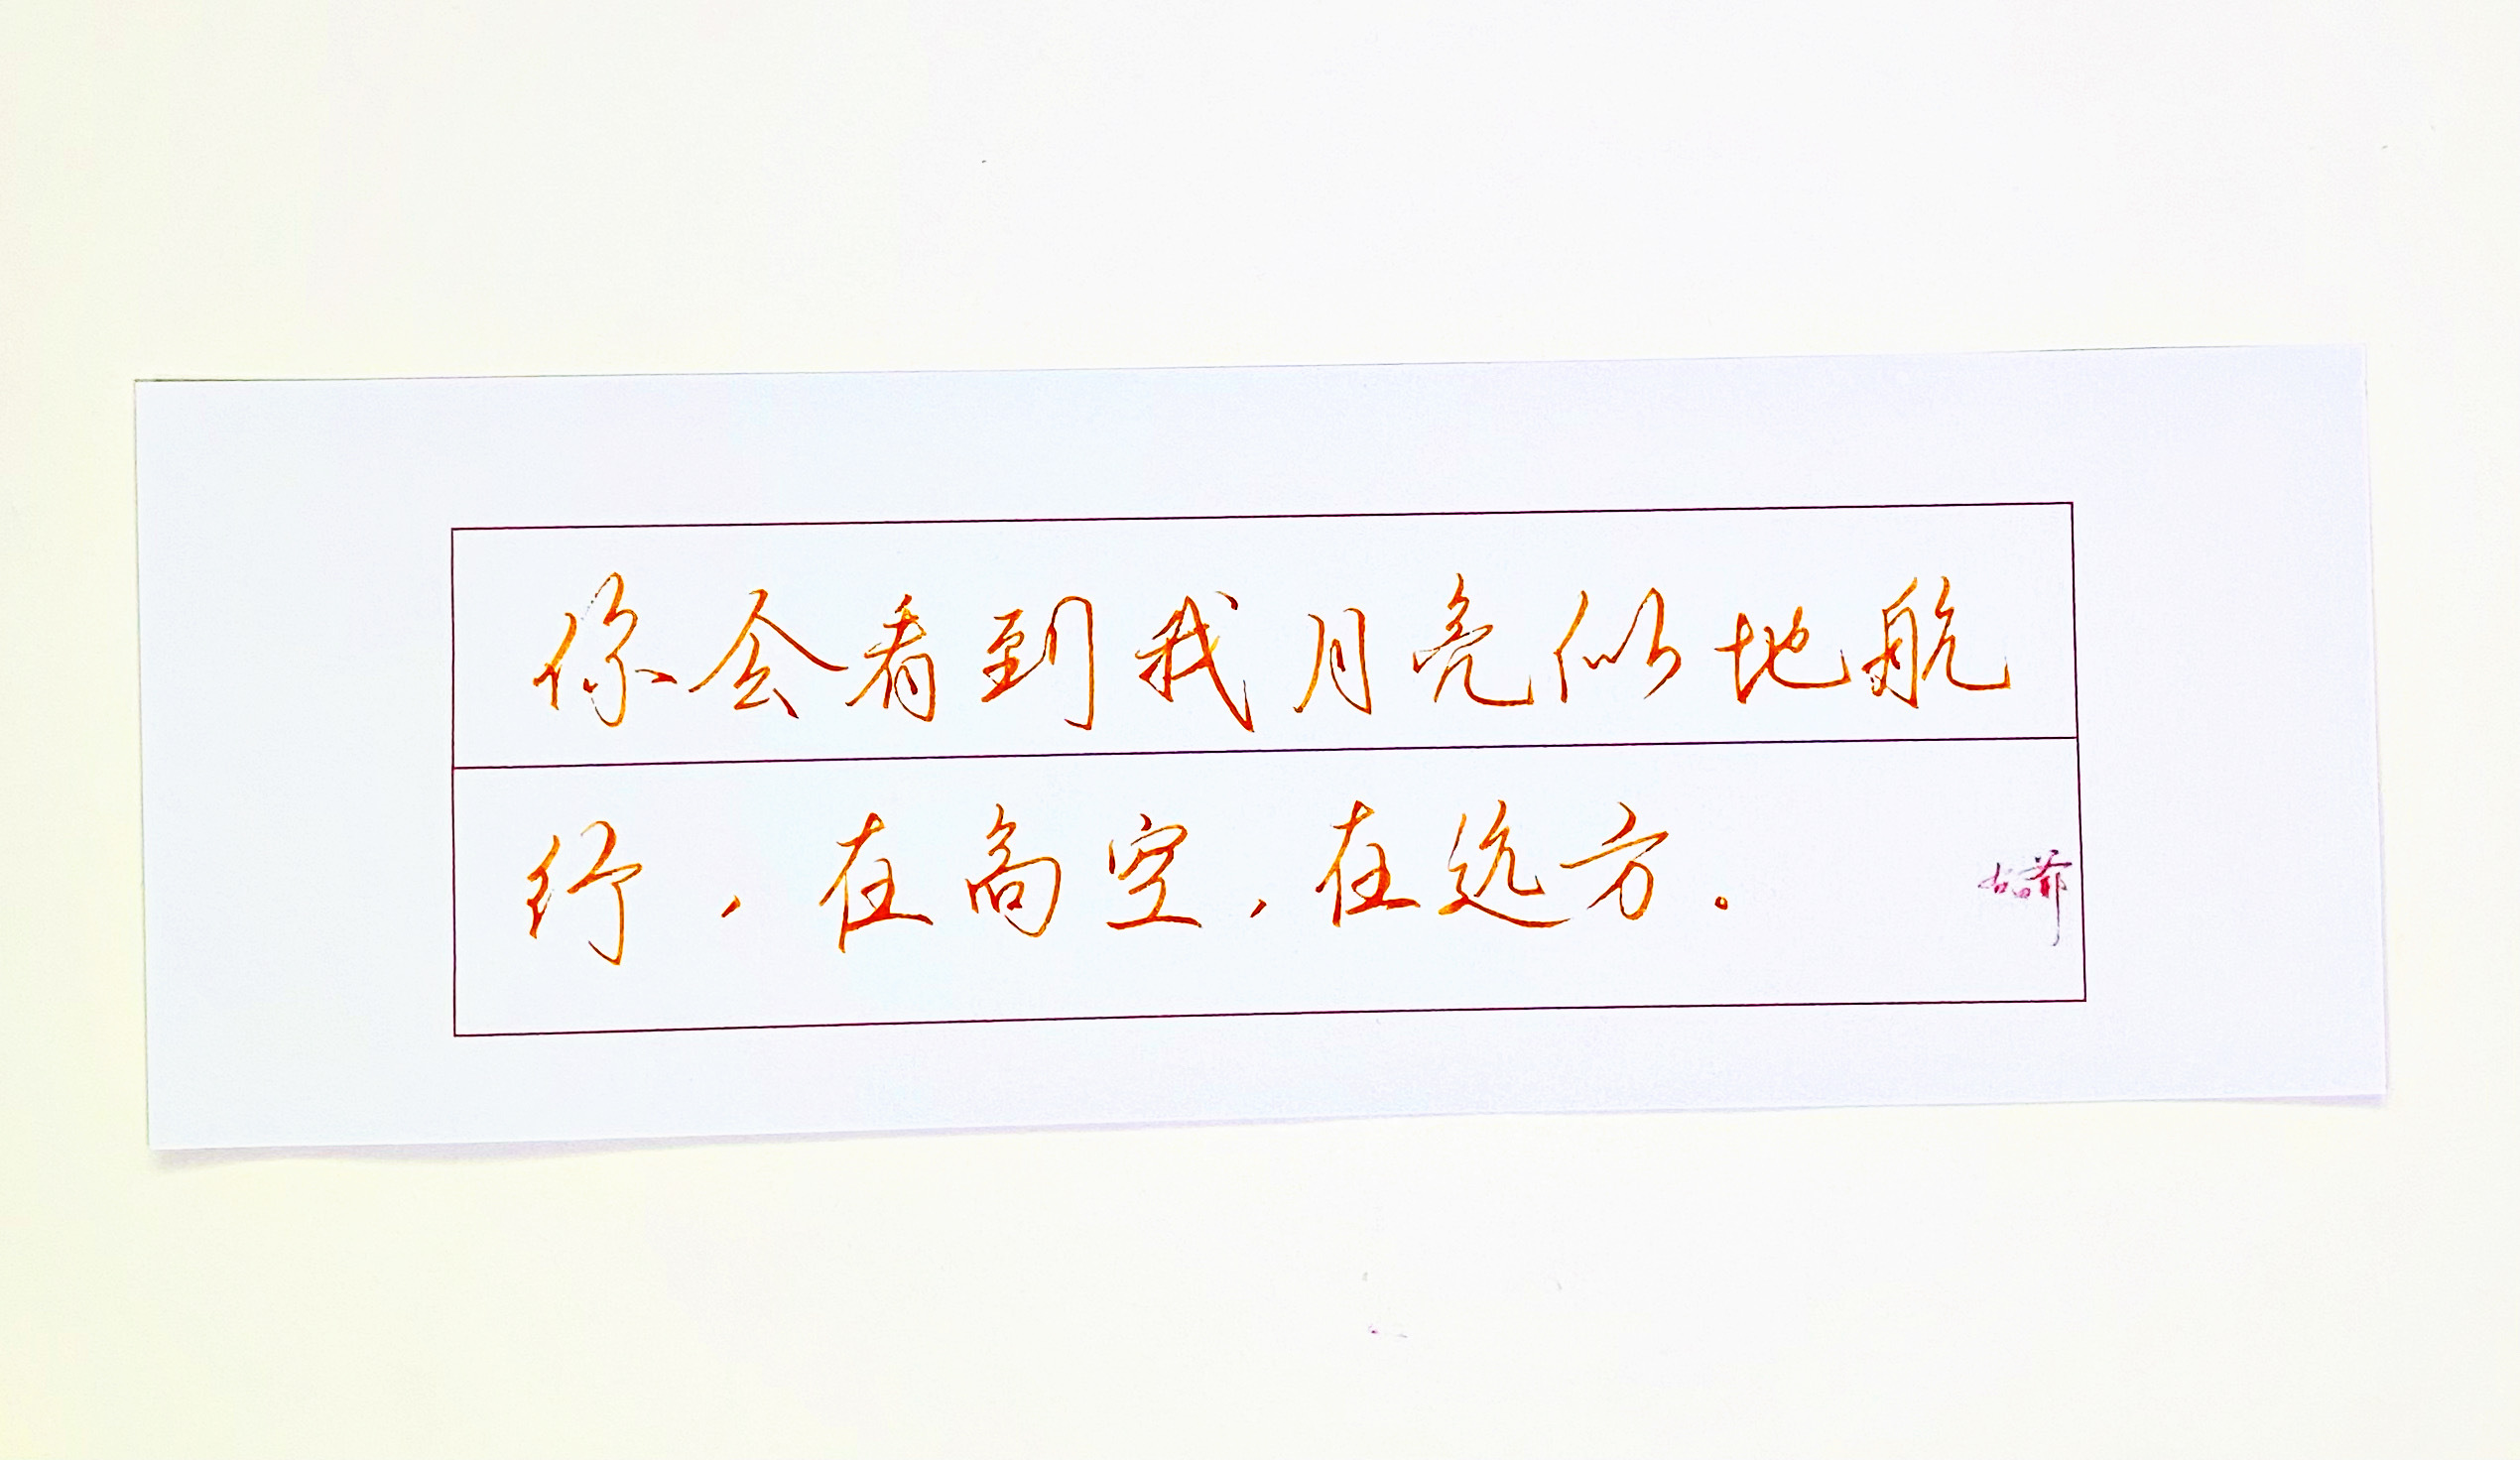 你会看到我月亮似地航
行，在高空，在远方。